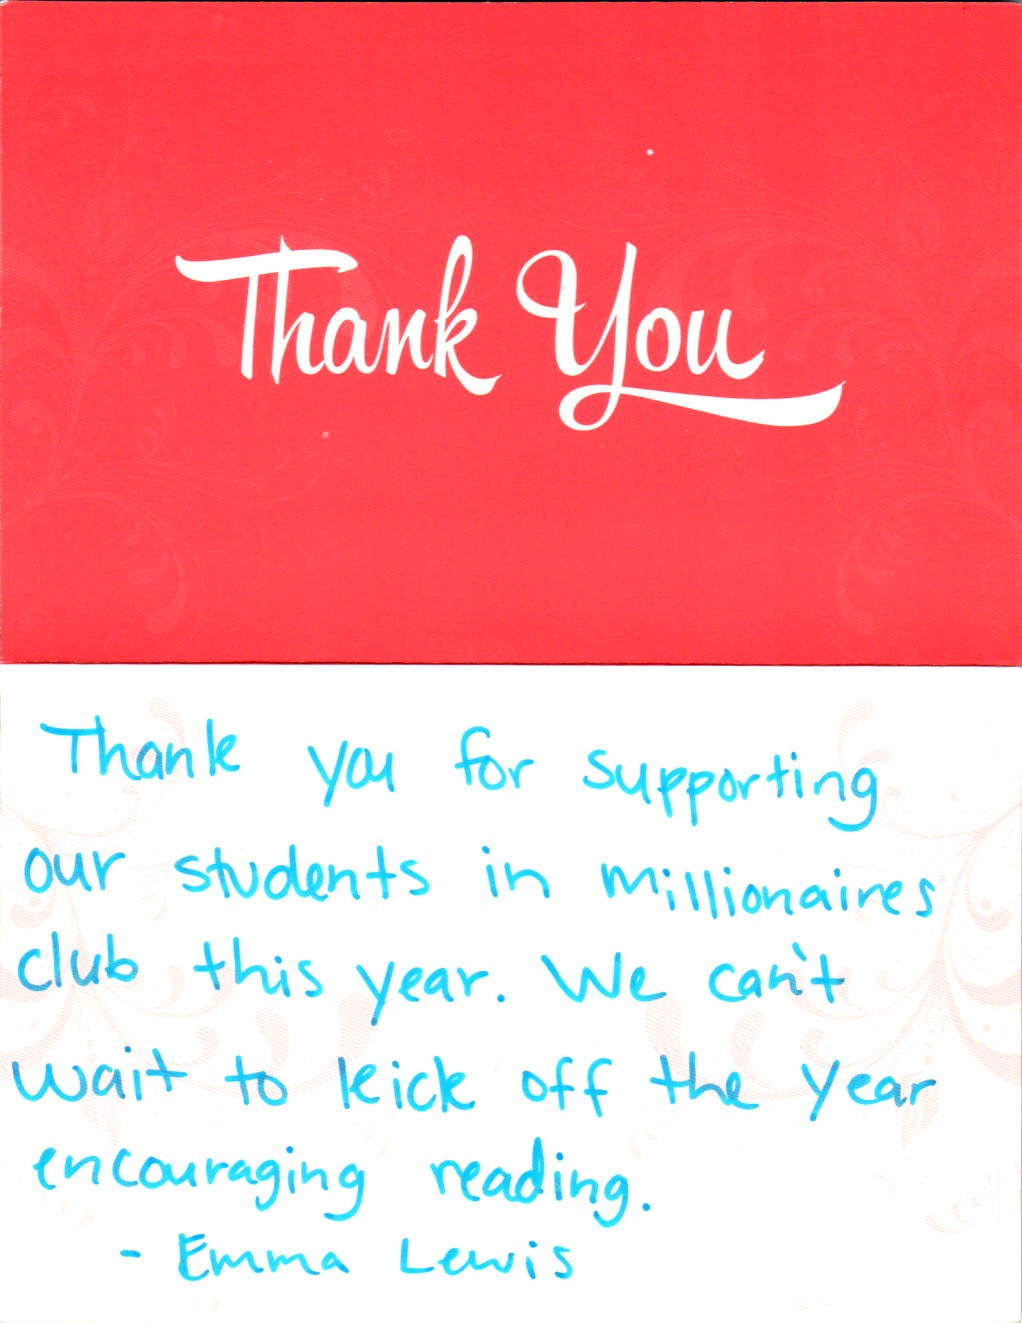 Thank You
Thank you for supporting
our students in millionaires
club this year. We can't
wait to kick off the year
encouraging reading.
- Emma Lewis